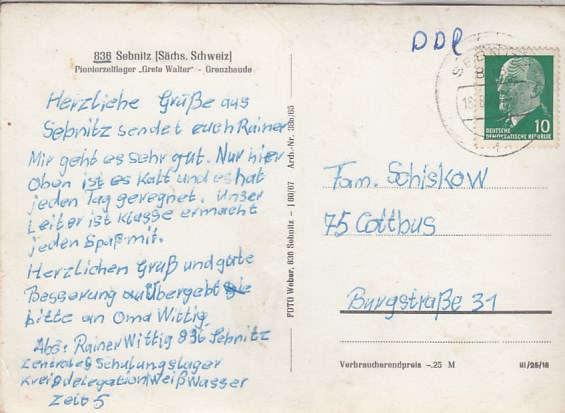 836 Sebnitz [Sächs. Schweiz]
Pionierzeltlager „Grete Walter" - Grenzbaude
Herzliche Grüße aus
Sebnitz sendet euch Rainer
Mir geht es sehr gut. Nur hier
Oben ist es Kalt und es hat
jeden Tag geregnet. Unser
Leiter ist Klasse er macht
jeden Spaß mit.
Herzlichen Gruß und gute
Besserung Übergebt
bitte an Oma Wittig
Abs: Rainer Wittig 836 Sebnitz
Zentrales Schulungslager
Kreisdelegation Weißwasser
Zelt 5
FOTO Weber, 836 Sebnitz - J 60/67 Arch-Nr. 38b/65
DDR
SEBNITZ
DEUTSCHE
DEMOKRATISCHE REPUBLIK
10
Fam. Schiskow
75 Cottbus
Burgstraße 31
Verbraucherendpreis -.25 M
III/28/16